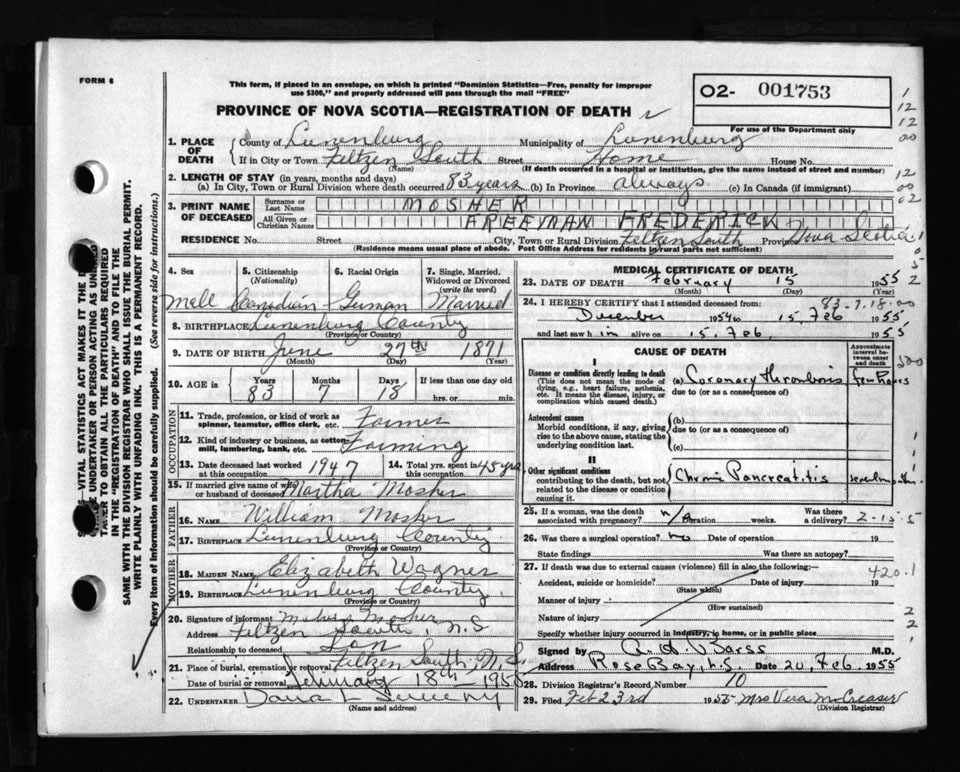 FORM 6
This form, if placed in an envelope, on which is printed "Dominion Statistics—Free, penalty for improper
use $300," and properly addressed will pass through the mail "FREE"
PROVINCE OF NOVA SCOTIA—REGISTRATION OF DEATH
02- 001753
For use of the Department only
1. PLACE OF DEATH
County of Lunenburg Municipality of Lunenburg
If in City or Town Feltzen South Street Home House No.
(Name) (If death occurred in a hospital or institution, give the name instead of street and number)
2. LENGTH OF STAY (in years, months and days)
(a) In City, Town or Rural Division where death occurred 83 years (b) In Province always (c) In Canada (if immigrant)
3. PRINT NAME OF DECEASED
Surname or Last Name MOSHER
All Given or Christian Names FREEMAN FREDERICK
RESIDENCE No. Street City, Town or Rural Division Feltzen South Province Nova Scotia
(Residence means usual place of abode. Post Office Address for residents in rural parts not sufficient)
4. Sex 5. Citizenship (Nationality) 6. Racial Origin 7. Single, Married, Widowed or Divorced (write the word)
Male Canadian German Married
8. BIRTHPLACE Lunenburg County
(Province or Country)
9. DATE OF BIRTH June 27th 1871
(Month) (Day) (Year)
10. AGE in Years 83 Months 7 Days 18 If less than one day old
hrs. or min.
OCCUPATION
11. Trade, profession, or kind of work as
spinner, teamster, office clerk, etc. Farmer
12. Kind of industry or business, as cotton-
mill, lumbering, bank, etc. Farming
13. Date deceased last worked at this occupation 1947 14. Total yrs. spent in this occupation 45 yrs.
15. If married give name of wife
or husband of deceased Martha Mosher
FATHER
16. NAME William Mosher
17. BIRTHPLACE Lunenburg County
(Province or Country)
MOTHER
18. MAIDEN NAME Elizabeth Wagner
19. BIRTHPLACE Lunenburg County
(Province or Country)
20. Signature of informant Mosher
Address Feltzen South, N.S
Relationship to deceased Son
21. Place of burial, cremation or removal Feltzen South N.S.
Date of burial or removal February 18th 1955
22. UNDERTAKER Dana L
(Name and address)
MEDICAL CERTIFICATE OF DEATH
23. DATE OF DEATH February 15 1955
(Month) (Day) (Year)
83-7-18-00
24. I HEREBY CERTIFY that I attended deceased from:
December 1954 to 15 Feb 1955
and last saw him alive on 15. Feb. 1955
CAUSE OF DEATH
Approximate interval between onset and death
I
Disease or condition directly leading to death
(This does not mean the mode of
dying, e.g., heart failure, asthenia,
etc. It means the disease, injury, or
complication which caused death.)
(a) Coronary thrombosis
due to (or as a consequence of)
few hours
Antecedent causes
Morbid conditions, if any, giving
rise to the above cause, stating the
underlying condition last.
(b)
due to (or as a consequence of)
(c)
II
Other significant conditions
contributing to the death, but not
related to the disease or condition
causing it.
Chronic Pancreatitis
25. If a woman, was the death Was there
associated with pregnancy? n/a Duration weeks. a delivery? 2-15-5
26. Was there a surgical operation? no Date of operation 19
State findings Was there an autopsy?
27. If death was due to external causes (violence) fill in also the following:
420.1
Accident, suicide or homicide? Date of injury 19
(State which)
Manner of injury
(How sustained)
Nature of injury
Specify whether injury occurred in industry, in home, or in public place
Signed by Barss M.D.
Address Rose Bay, N.S. Date 20 Feb. 1955
28. Division Registrar's Record Number 10
29. Filed Feb 23rd 1955 Mrs Vera M Creaser
(Division Registrar)
VITAL STATISTICS ACT MAKES IT THE
UNDERTAKER OR PERSON ACTING AS
TAKER TO OBTAIN ALL THE PARTICULARS REQUIRED
IN THE "REGISTRATION OF DEATH" AND TO FILE THE
SAME WITH THE DIVISION REGISTRAR WHO SHALL ISSUE THE BURIAL PERMIT.
WRITE PLAINLY WITH UNFADING INK. THIS IS A PERMANENT RECORD.
Every item of information should be carefully supplied. (See reverse side for instructions.)